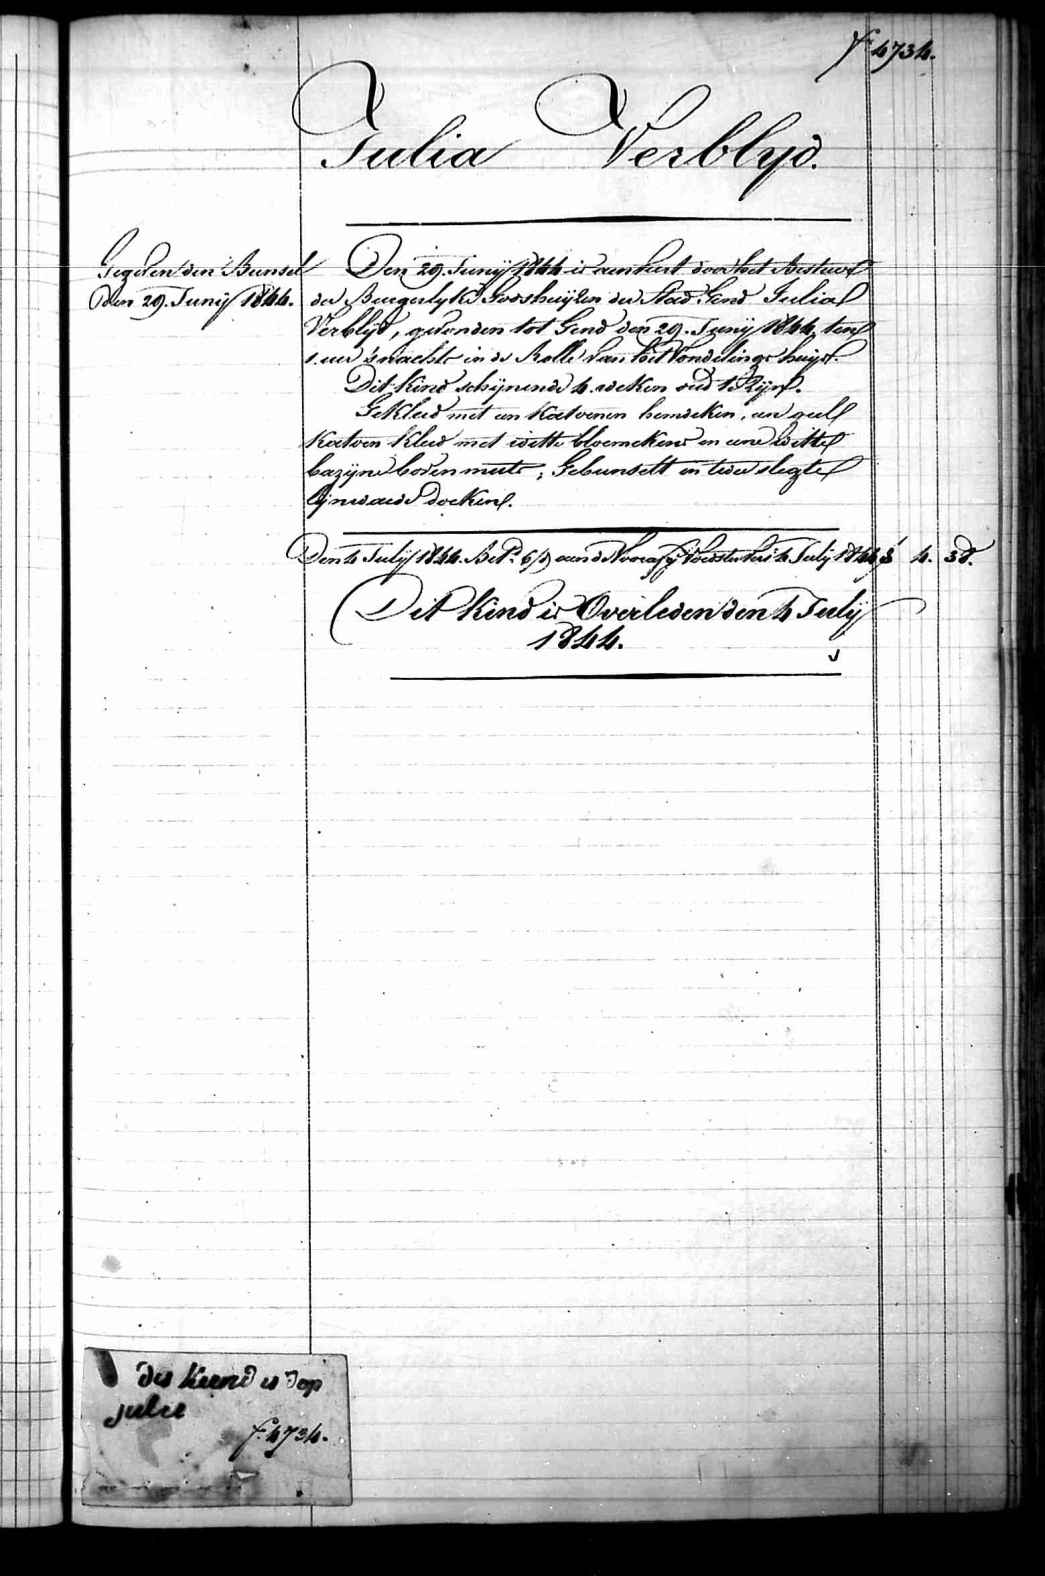 f° 4734.
Julia Verblyd.
Gegeven den Bunsel
den 29. Junij 1844.
Den 29. Junij 1844 is aenhert door het Bestuer
der Burgerlyke Godshuijzen der Stad Gend Julia
Verblyd, gevonden tot Gend den 29. Junij 1844, ten
1. uer 's nachts in de Rolle van het Vondelinge huijs.
Dit kind schijnende 4. weken oud te Zijn.
Gekleed met een katoenen hemdeken, een geel
katoen kleed met witte bloemekens en eene witte
bazijne bovenmuts, Gebunselt in twee slegte
lijnwaede doeken.
Den 4 July 1844. Bet.d 6/ aan de Voedsters 4 July 1844 4. 38.
Dit kind is Overleden den 4 July
1844.
dis keend is dop
julie
f° 4734.